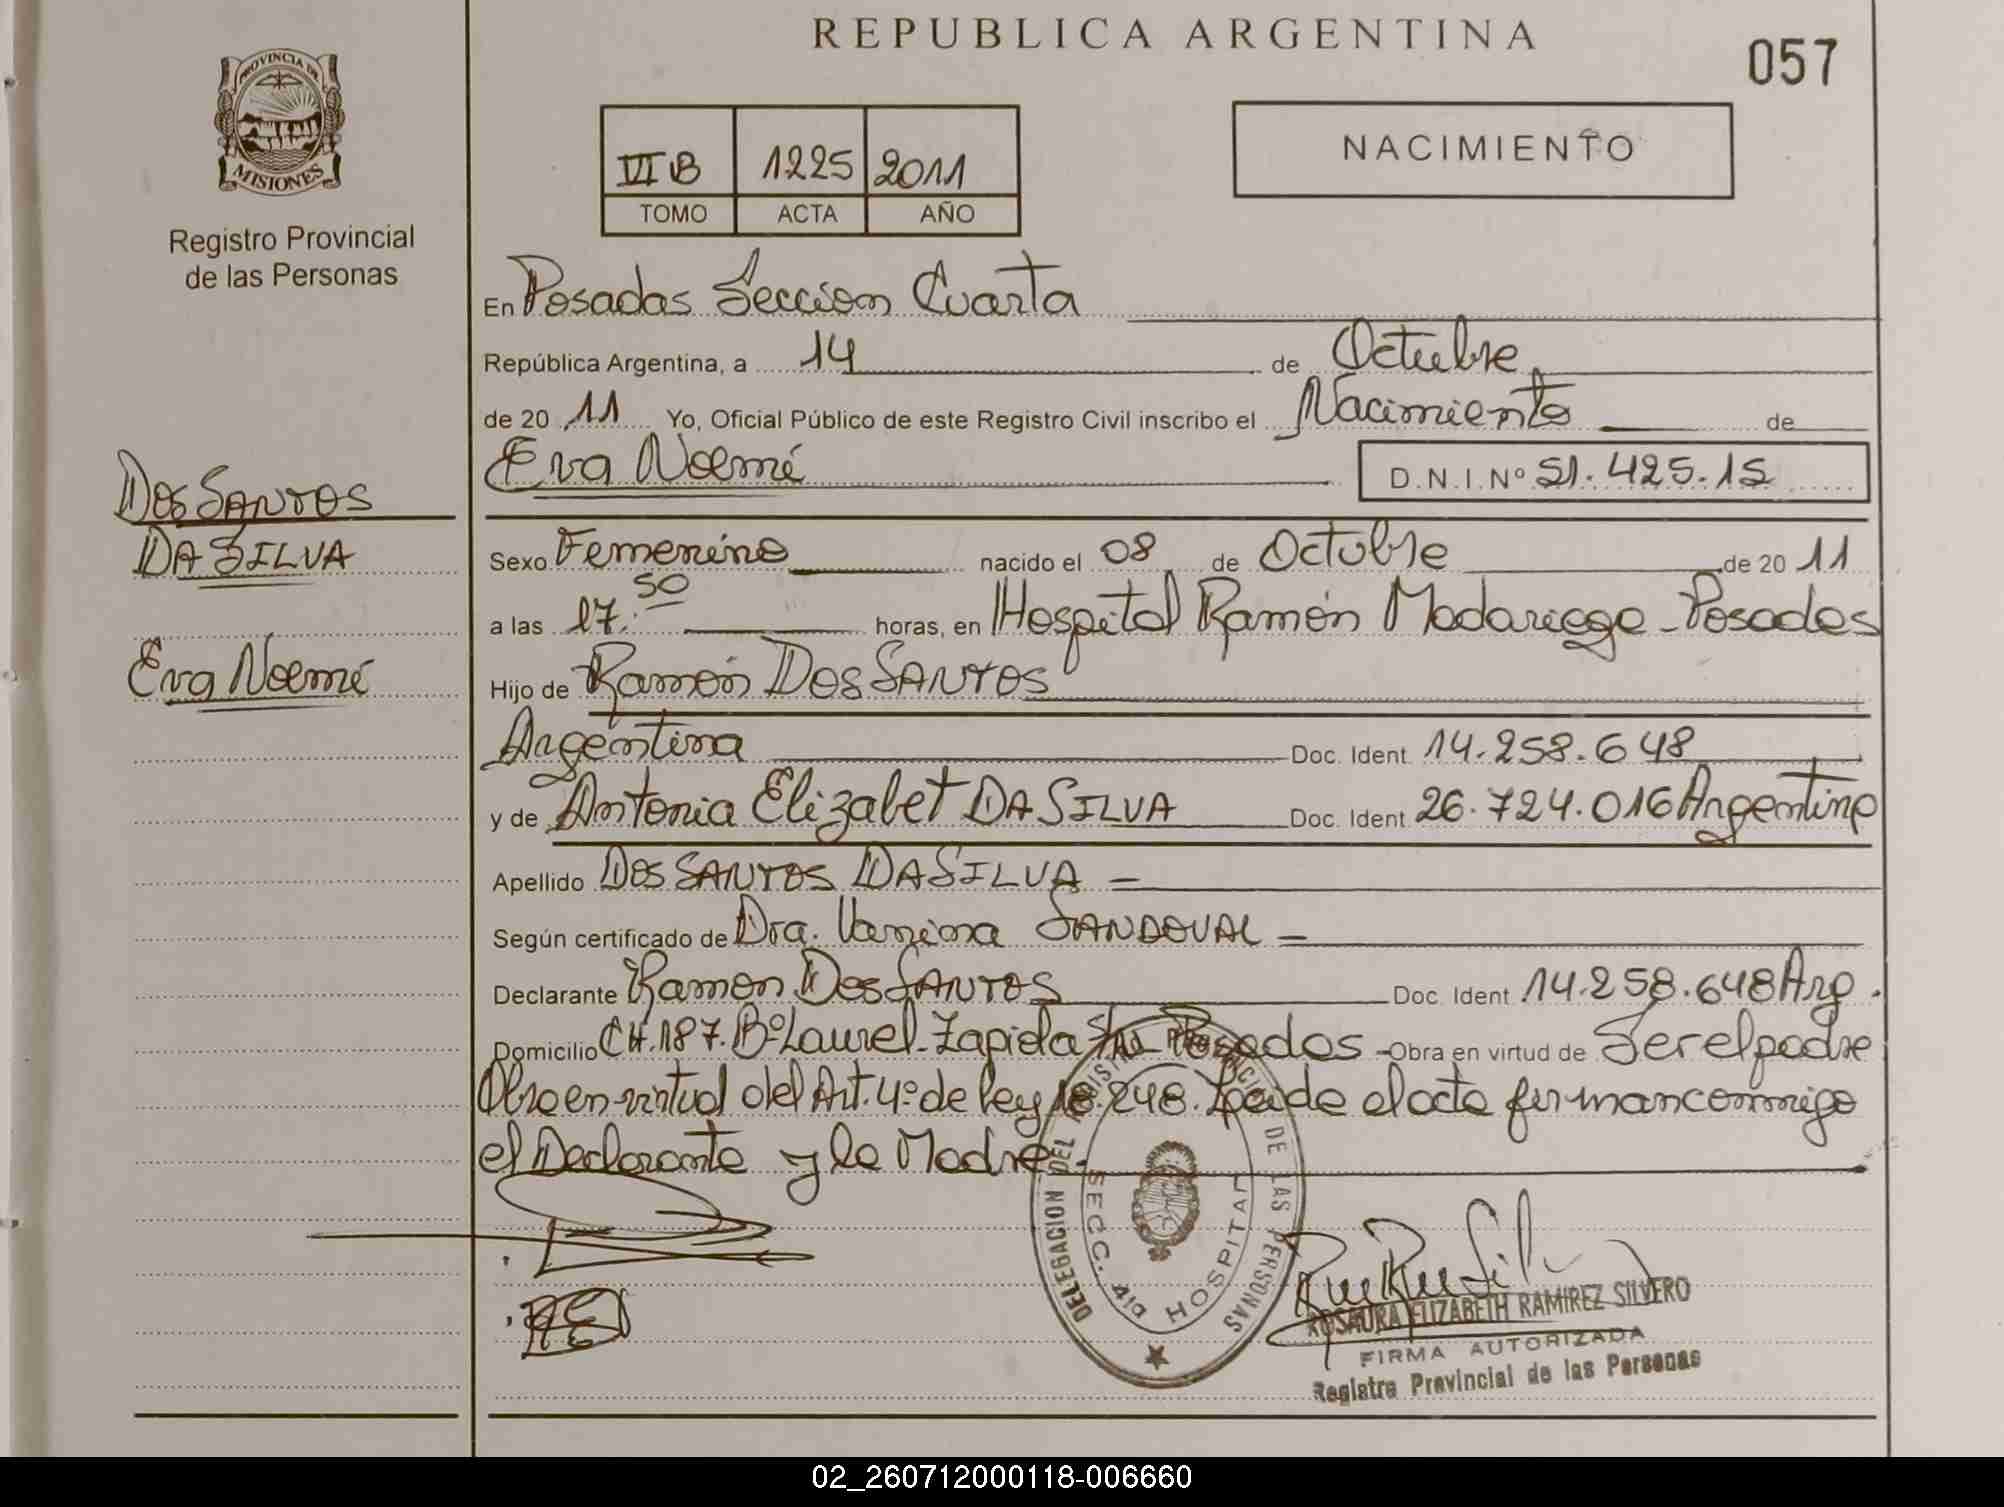 REPUBLICA ARGENTINA
057
PROVINCIA DE
MISIONES
Registro Provincial
de las Personas
VI B 1225 2011
TOMO ACTA AÑO
NACIMIENTO
En Posadas Seccion Cuarta
República Argentina, a 14 de Octubre
de 20 11 Yo, Oficial Público de este Registro Civil inscribo el Nacimiento de
Eva Noemí D.N.I.Nº 51.425.15
DOS SANTOS
DA SILVA
Eva Noemí
Sexo Femenino nacido el 08 de Octubre de 20 11
a las 17:50 horas, en Hospital Ramón Madariaga - Posadas
Hijo de Ramón DOS SANTOS
Argentina Doc. Ident. 14.258.648
y de Antonia Elizabet DA SILVA Doc. Ident. 26.724.016 Argentina
Apellido DOS SANTOS DA SILVA =
Según certificado de Dra. Vanina SANDOVAL =
Declarante Ramon DOS SANTOS Doc. Ident. 14.258.648 Arg.
Domicilio CH.187. Bº Laurel - Zapiola S/Nº Posados - Obra en virtud de Ser el padre
Obra en virtud del Art. 4º de ley 18.248. Leida el acta firman conmigo
el Declarante y la Madre.-
DELEGACION DEL REGISTRO PROVINCIAL DE LAS PERSONAS
SECC. 4ta HOSPITAL
ROSAURA ELIZABETH RAMIREZ SILVERO
FIRMA AUTORIZADA
Registro Provincial de las Personas
02_260712000118-006660